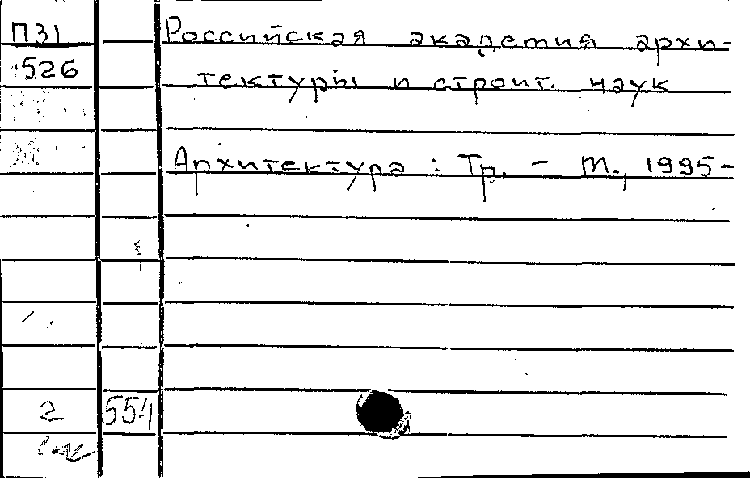 П31 Российская академия архи-
526 тектуры и строит. наук
Архитектура : Тр. - М., 1995-
2 554